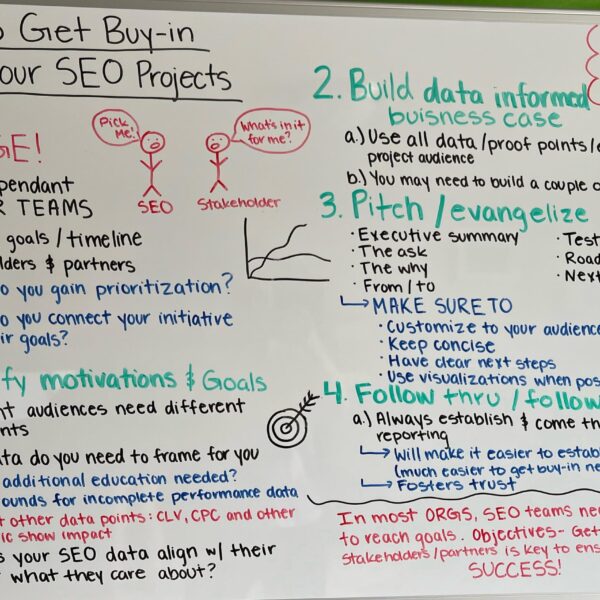 Get Buy-in
our SEO Projects
GE!
Pick Me!
What's in it for me?
SEO
Stakeholder
pendant
R TEAMS
goals / timeline
lders & partners
o you gain prioritization?
o you connect your initiative
ir goals?
fy motivations & Goals
nt audiences need different
nts
ata do you need to frame for you
additional education needed?
ounds for incomplete performance data
t other data points: CLV, CPC and other
ic show impact
s your SEO data align w/ their
what they care about?
2. Build data informed
buisness case
a.) Use all data /proof points/e
project audience
b.) You may need to build a couple o
3. Pitch /evangelize
· Executive summary
· The ask
· The why
· From / to
· Test
· Road
· Next
MAKE SURE TO
· Customize to your audience
· Keep concise
· Have clear next steps
· Use visualizations when pos
4. Follow thru / follow
a.) Always establish & come th
reporting
Will make it easier to establ
(much easier to get buy-in ne
Fosters trust
In most ORGS, SEO teams nee
to reach goals. Objectives- Gett
stakeholders/partners is key to ens
SUCCESS!